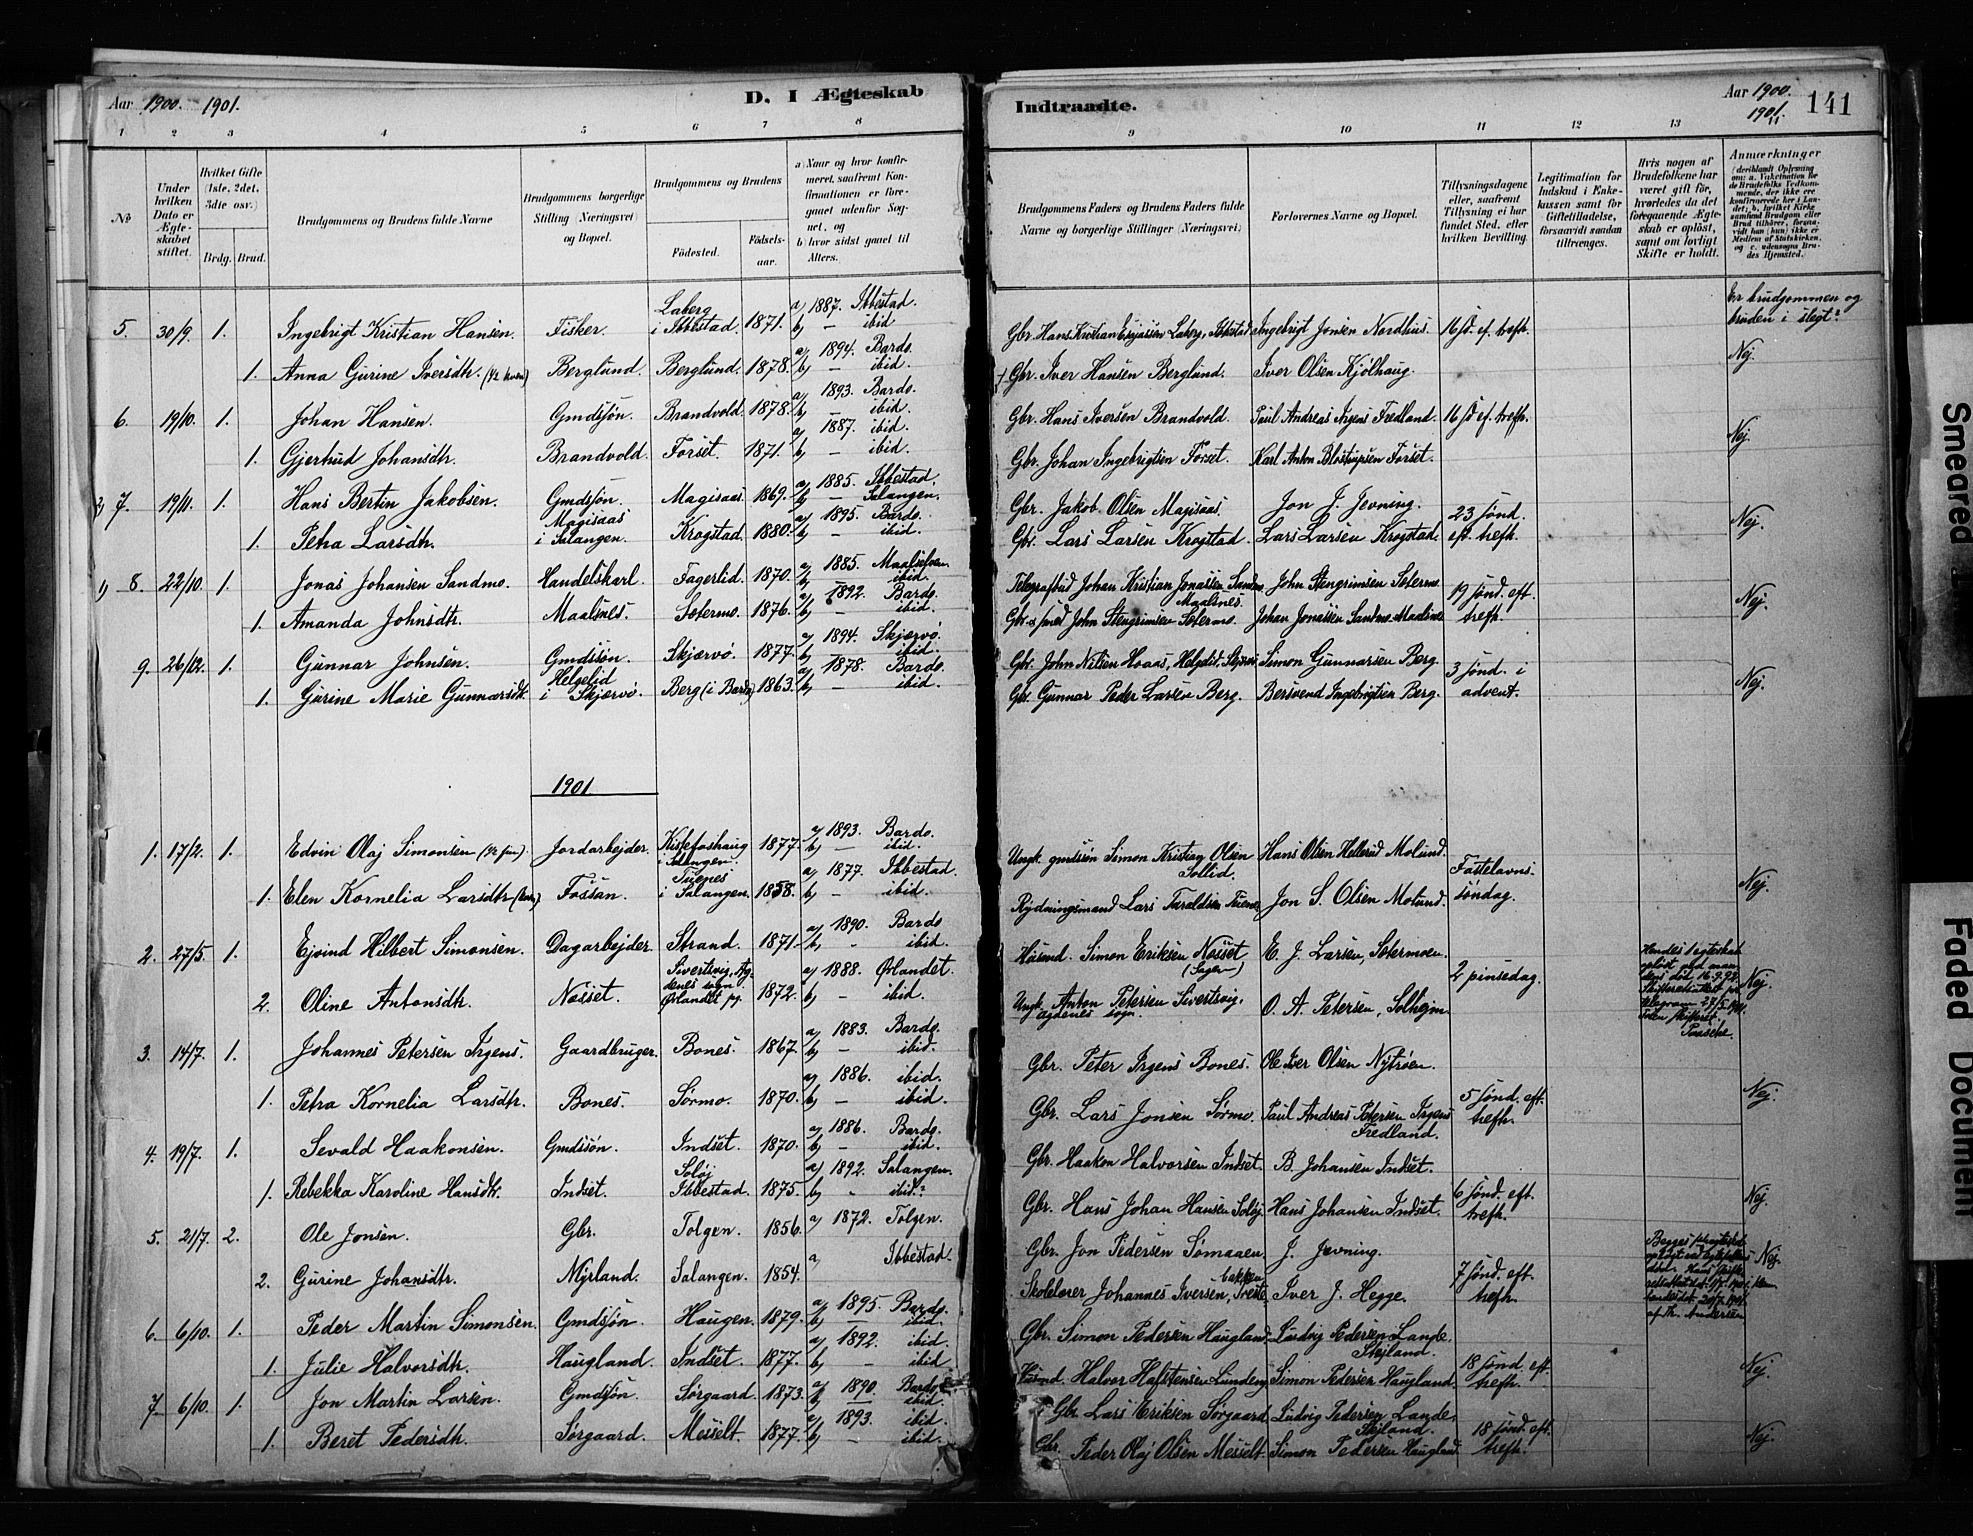 Aar 1900. 1901. D. I Ægteskab Indtraadte. Aar 1900. 1901. 141
1 2 3 4 5 6 7 8 9 10 11 12 13
No
Under hvilken Dato er Ægteskabet stiftet.
Hvilket Gifte (1ste, 2det, 3die osv.)
Brdg. Brud.
Brudgommens og Brudens fulde Navne
Brudgommens borgerlige Stilling (Næringsvei) og Bopæl.
Brudgommens og Brudens
Fødested. Fødselsaar.
a) Naar og hvor konfirmeret, saafremt Konfirmationen er foregaaet udenfor Sognet, og
b) hvor sidst gaaet til Alters.
Brudgommens Faders og Brudens Faders fulde Navne og borgerlige Stillinger (Næringsvei)
Forlovernes Navne og Bopæl.
Tillysningsdagene eller, saafremt Tillysning ei har fundet Sted, efter hvilken Bevilling.
Legitimation for Indskud i Enkekassen samt for Giftetilladelse, forsaavidt saadan tiltrænges.
Hvis nogen af Brudefolkene har været gift før, hvorledes da det foregaaende Ægteskab er opløst, samt om lovligt Skifte er holdt.
Anmærkninger
5. 30/9. 1. Ingebrigt Kristian Hansen. Fisker. Laberg i Ibbestad. 1871. a) 1887. Ibbestad. b) — ibid Gbr. Hans Kristian Laberg, Ibbestad Ingebrigt Jonsen Nordhus. 16 s. ef. trefh. Er brudgommen og bruden i slegt?
1. Anna Gurine Iversdtr. (1/2 kven) Berglund. Berglund. 1878. a) 1894. Bardo. b) — ibid. Gbr. Iver Hansen Berglund. Iver Olsen Kjölhaug. Nej.
6. 19/10. 1. Johan Hansen. Gmdssøn. Brandvold. 1878. a) 1893. Bardo. b) — ibid. Gbr. Hans Iversen Brandvold. Paul Andreas Irgens Fredland. 16 s. ef. trefh.
1. Gjertrud Johansdtr. Brandvold. Forset. 1871. a) 1887. ibid. b) — ibid. Gbr. Johan Ingebrigtsen Forset. Karl Anton Forset. Nej.
7. 19/11. 1. Hans Bertin Jakobsen. Gmdssøn. Magisaas. 1869. a) 1885. Ibbestad. b) — Salangen. Gbr. Jakob Olsen Magisaas. Jon J. Jevning. 23 sønd.
1. Petra Larsdtr. Magisaas i Salangen. Krogstad. 1880. a) 1895. Bardo. b) — ibid. Gbr. Lars Larsen Krogstad. Lars Larsen Krogstad. eft. trefh. Nej.
8. 22/10. 1. Jonas Johansen Sandmo. Handelskarl. Fagerlid. 1870. a) 1885. Maalselven. b) — ibid. Telegrafbud Johan Kristian Jonassen Sandmo Maalsnes. John Stengrimsen Setermo. 19 sønd. eft.
1. Amanda Johnsdtr. Maalsnes. Setermo. 1876. a) 1892. Bardo. b) — ibid. Gbr. & smed John Stengrimsen Setermo. Johan Jonassen Sandmo Maalsnes trefh. Nej.
9. 26/12. 1. Gunnar Johnsen. Gmdssøn. Skjærvö. 1877. a) 1894. Skjærvö. b) — ibid. Gbr. John Nilsen Hoaas, Simon Gunnarsen Berg. 3 sønd. i
1. Gurine Marie Gunnarsdtr. Helgelid i Skjærvö. Berg (i Bardo) 1863. a) 1878. Bardo. b) — ibid. Gbr. Gunnar Peder Larsen Berg. Bersvend Ingebrigtsen Berg. advent. Nej.
1901
1. 17/2. 1. Edvin Olaj Simonsen Jordarbejder. Kistefoshaug i Salangen. 1877. a) 1893. Bardo. b) — ibid. Ungk. gmdssøn Simon Kristian Olsen Sollid. Hans Olsen Hellerud Molund. Fastelavns-
1. Elen Kornelia Larsdtr. Fossan. Tuenes i Salangen. 1858. a) 1877. Ibbestad. b) — ibid. Rydningsmand Lars Taraldsen Tuenes Jon S. Olsen Molund. søndag. Nej.
2. 27/5. 1. Ejvind Hilbert Simonsen. Dagarbejder. Strand. 1871. a) 1890. Bardo b) - ibid. Husmd. Simon Eriksen Nosset E. J. Larsen, Setermoen. 2 pinsedag.
2. Oline Antonsdtr. Nosset. Sivertsvig, Agdenes sogn Ørlandet pg. 1872. a) 1888. Ørlandet. b) — ibid. Ungk. Anton Petersen Sivertsvig, Agdenes sogn. O. A. Petersen, Solhejm Nej.
3. 14/7. 1. Johannes Petersen Irgens. Gaardbruger. Bones. 1867. a) 1883. Bardo. b) — ibid. Gbr. Peter Irgens Bones. Ole Iver Olsen Nytrøen.
1. Petra Kornelia Larsdtr. Bones. Sørmo. 1870. a) 1886. ibid. b) — ibid. Gbr. Lars Jonsen Sørmo. Paul Andreas Petersen Irgens Fredland. 5 sønd. eft. trefh. Nej.
4. 19/7. 1. Sevald Haakonsen. Gmdssøn. Indset. 1870. a) 1886. Bardo. b) — ibid. Gbr. Haakon Halvorsen Indset. B. Johansen Indset.
1. Rebekka Karoline Hansdtr. Indset. Soløj Ibbestad. 1875. a) 1892. Salangen. b) - ibid.? Gbr. Hans Johan Hansen Soløj. Hans Johansen Indset. 6 sønd. eft. trefh. Nej.
5. 21/7. 2. Ole Jonsen. Gbr. Tolgen. 1856. a) 1872. Tolgen. Gbr. Jon Pedersen Sømaaen. J. Jevning.
2. Gurine Johansdtr. Myrland. Salangen. 1854. a Ibbestad. Skolelærer Johannes Iversen, Iver J. Hegge. 7 sønd. eft. trefh. Nej.
6. 6/10. 1. Peder Martin Simonsen. Gmdssøn. Haugen. 1879. a) 1895. Bardo. b) — ibid. Gbr. Simon Pedersen Haugland. Ludvig Pedersen Lande Stejland.
1. Julie Halvorsdtr. Haugland. Indset. 1877. a) 1892. ibid. b) — ibid Husmd Halvor Hafstensen Lundeng Simon Pedersen Haugland. 18 sønd. eft. trefh. Nej.
7. 6/10. 1. Jon Martin Larsen. Gmdssøn. Sørgaard. 1873. a) 1890. Bardo. b) — ibid. Gbr. Lars Eriksen Sørgaard. Ludvig Pedersen Lande, Stejland.
1. Beret Pedersdtr. Sørgaard. Messelt. 1877. a) 1893. ibid. b) — ibid. Gbr. Peder Olaj Olsen Messelt. Simon Pedersen Haugland 18 sønd. eft. trefh. Nej.
Smeared
Faded Document